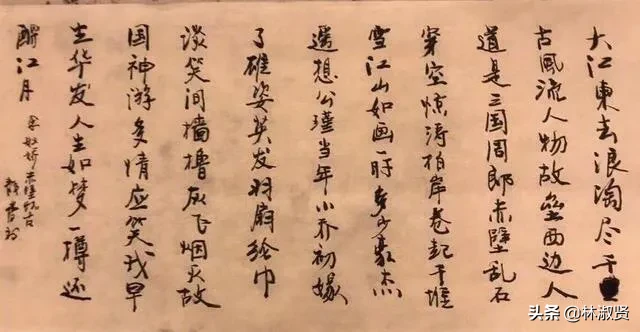 大江東去浪淘尽千
古風流人物故壘西边人
道是三国周郎赤壁乱石
穿空惊涛拍岸卷起千堆
雪江山如画一時多少豪杰
遥想公瑾当年小乔初嫁
了雄姿英发羽扇纶巾
谈笑间樯橹灰飞烟灭故
国神游多情应笑我早
生华发人生如梦一樽还
酹江月
念奴娇赤壁怀古
头条 @林淑贤